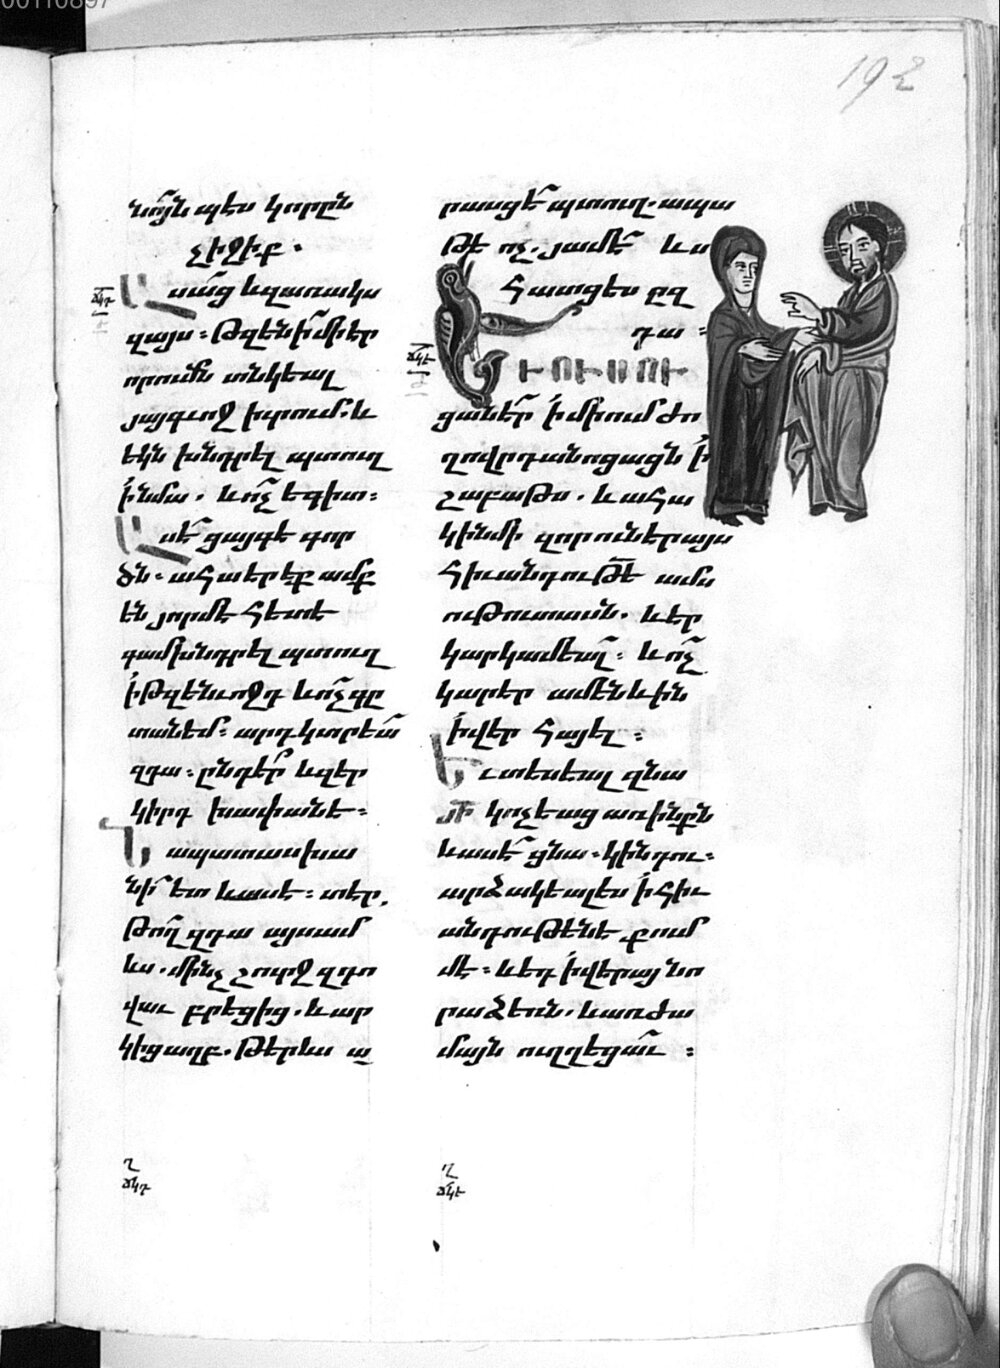 00110897
192
նո՞յնպէս կորըն
չիջիք.
Ասաց եւ զառակս
ճկդ
զայս։ Թզենի՛ միէր
ուրումն տնկեալ
յայգւոջ իւրում. և
եկն խնդրել պտուղ
ի՛նմա. և ո՛չ եգիտ։
Ասէ՛ ցայգե գոր
ծն. ահա երեք ամք
են յորմէ հետէ
գամ խնդրել պտուղ
ի՛ թզենւոջդ և ո՛չ գը
տանեմ։ արդ կտրեա՛
զդա։ ընդէ՛ր և զեր
կիրդ խափանէ։
Նա պատասխա
նի՛ ետ և ասէ։ տէր,
թո՛ղ զդա այսամ
ևս. մինչ շուրջ զդո
վաւ բրեցից. և ար
կից աղբ. թերևս ա
րասցէ՛ պտուղ. ապա
թե ոչ. յամէ՛ ևս
հատցես ըզ
դա։
ճկե
ԵՒ ՈՒՍՈՒ
ցանէ՛ր ի՛ միում ժո
ղովրդանոցացն ի՛
շաբաթս. և ահա
կին մի զոր ունէր այս
հիւանդութե ամս
ութուտասն. և էր
կարկամեալ։ և ո՛չ
կարէր ամենևին
ի՛ վեր հայել։
Եւ տեսեալ զնա
յի կոչեաց առ ինքն
և ասէ՛ ցնա. կին դու։
արձակեալ ես ի՛ հիւ
անդութենե քում
մէ։ և եդ ի՛ վերայ նո
րա ձեռն. և առժա
մայն ուղղեցա՛ւ։
ղ
ճկդ
ղ
ճկե